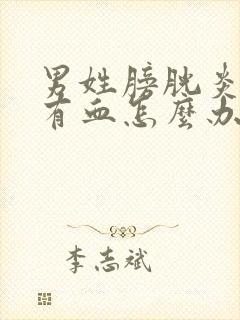 男姓膀胱炎
有血怎麽办
李志斌